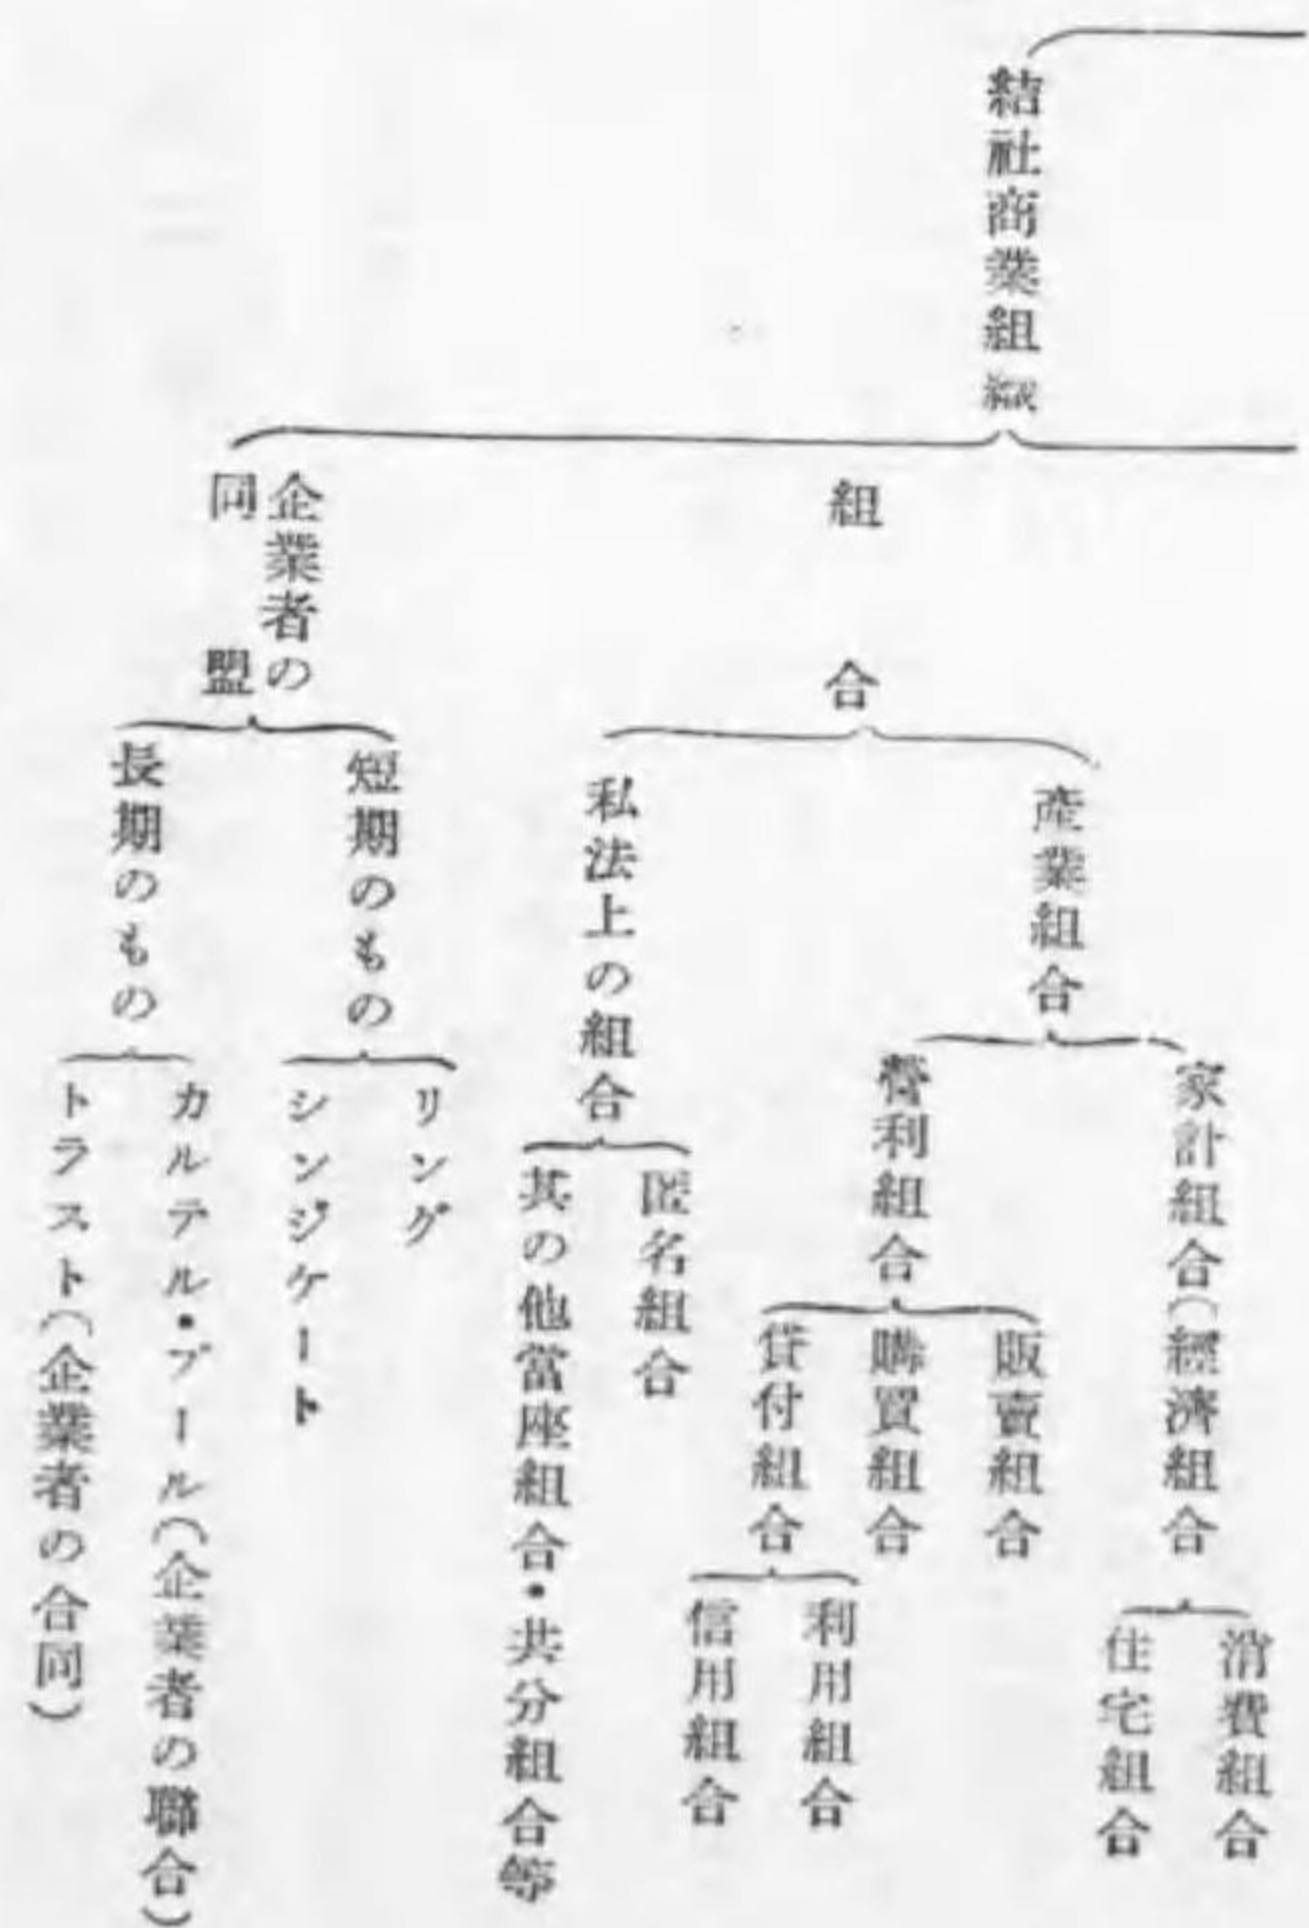 結社商業組織
組合
産業組合
家計組合(經濟組合)
消費組合
住宅組合
營利組合
販賣組合
購買組合
貸付組合
利用組合
信用組合
私法上の組合
匿名組合
其の他當座組合・共分組合等
企業者の
同盟
短期のもの
リング
シンジケート
長期のもの
カルテル・プール(企業者の聯合)
トラスト(企業者の合同)